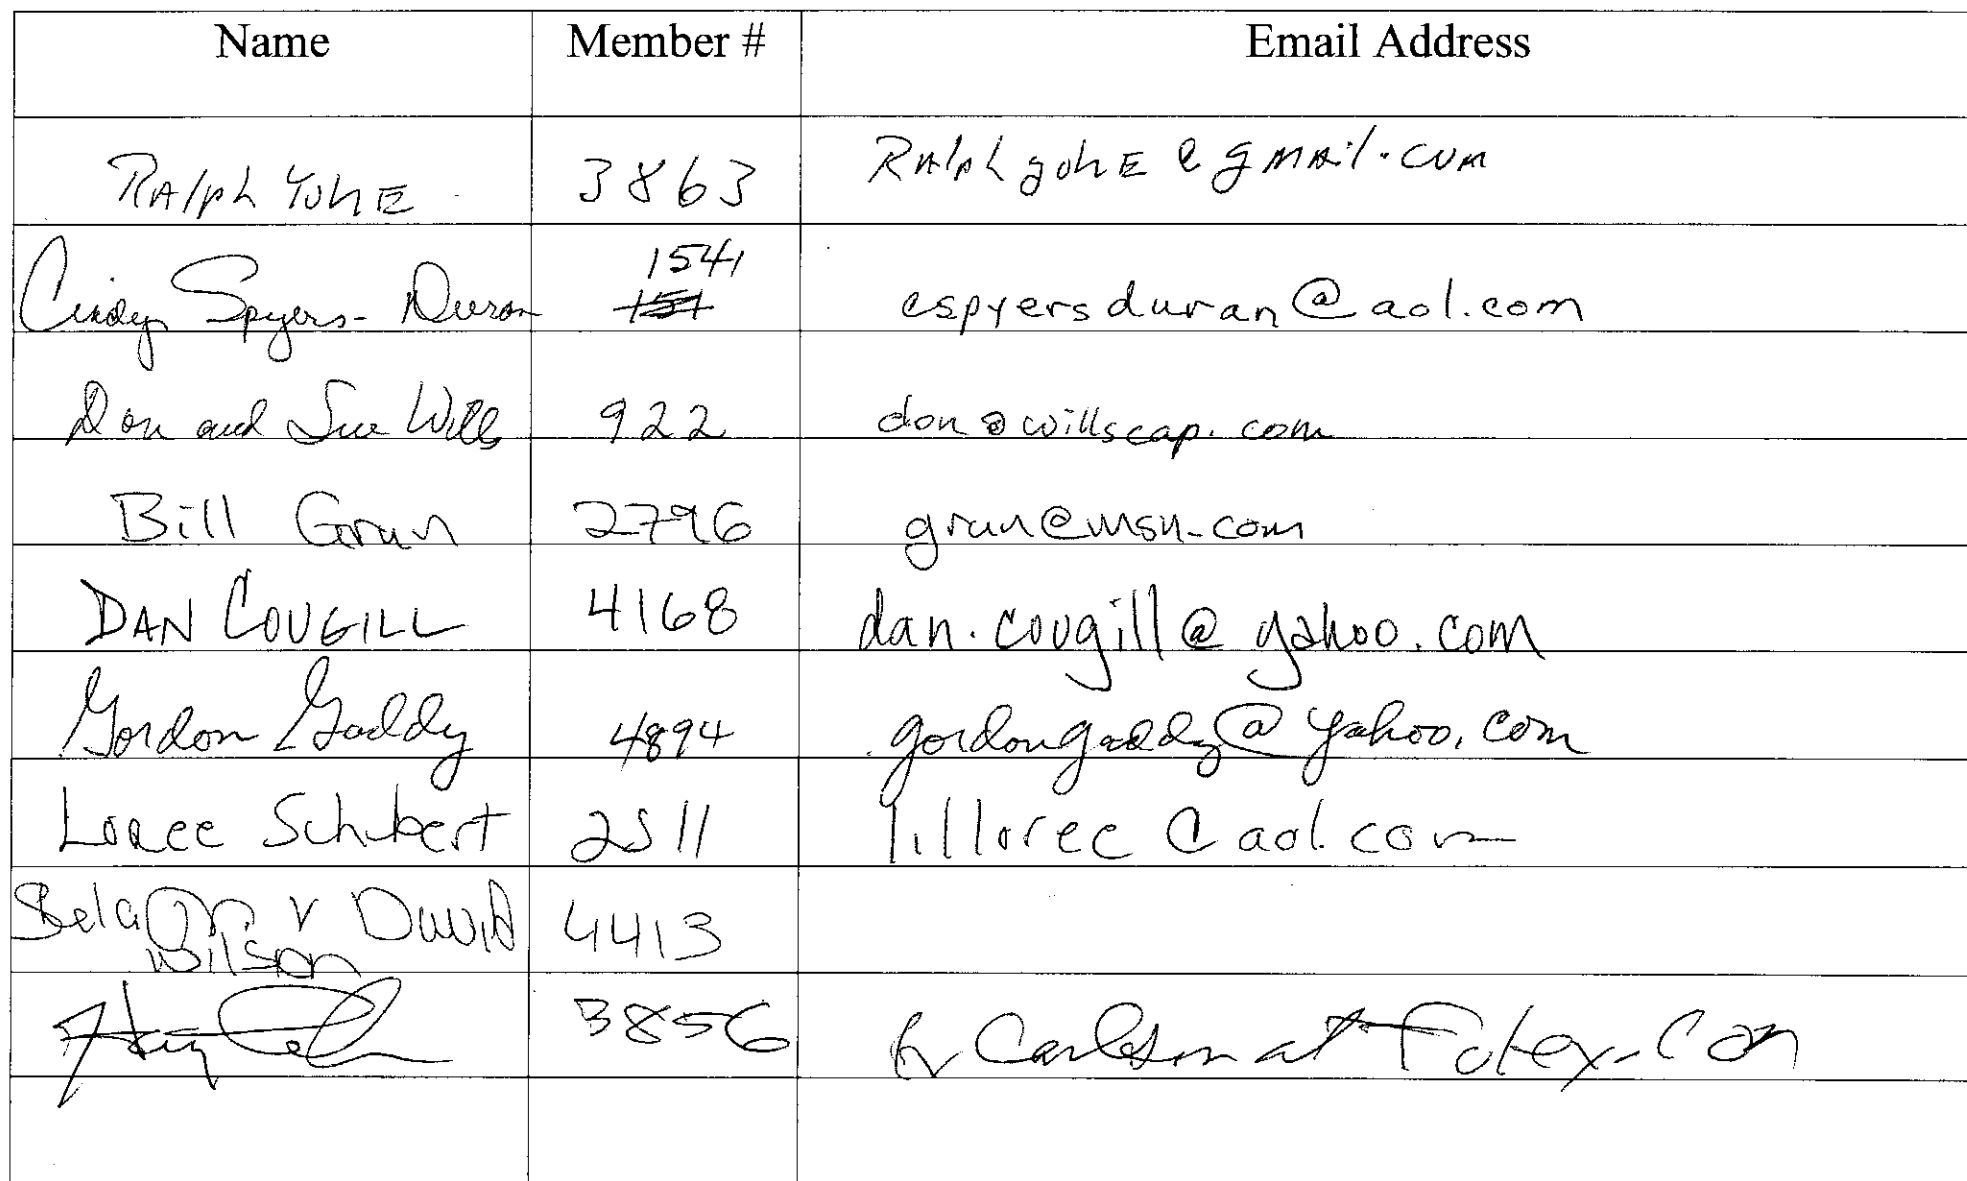 Name Member # Email Address
RAlph YohE 3863 RAlphyohE@gmAil.com
Cindy Spyers-Duran 1541 cspyersduran@aol.com
Don and Sue Wills 922 don@willscap.com
Bill Grun 2796 grun@msn.com
DAN COUGILL 4168 dan.cougill@yahoo.com
Gordon Gaddy 4894 gordongaddy@yahoo.com
Loree Schubert 2511 lilloree@aol.com
David 4413
Wilson
3856 Carlson at Fotex.Com